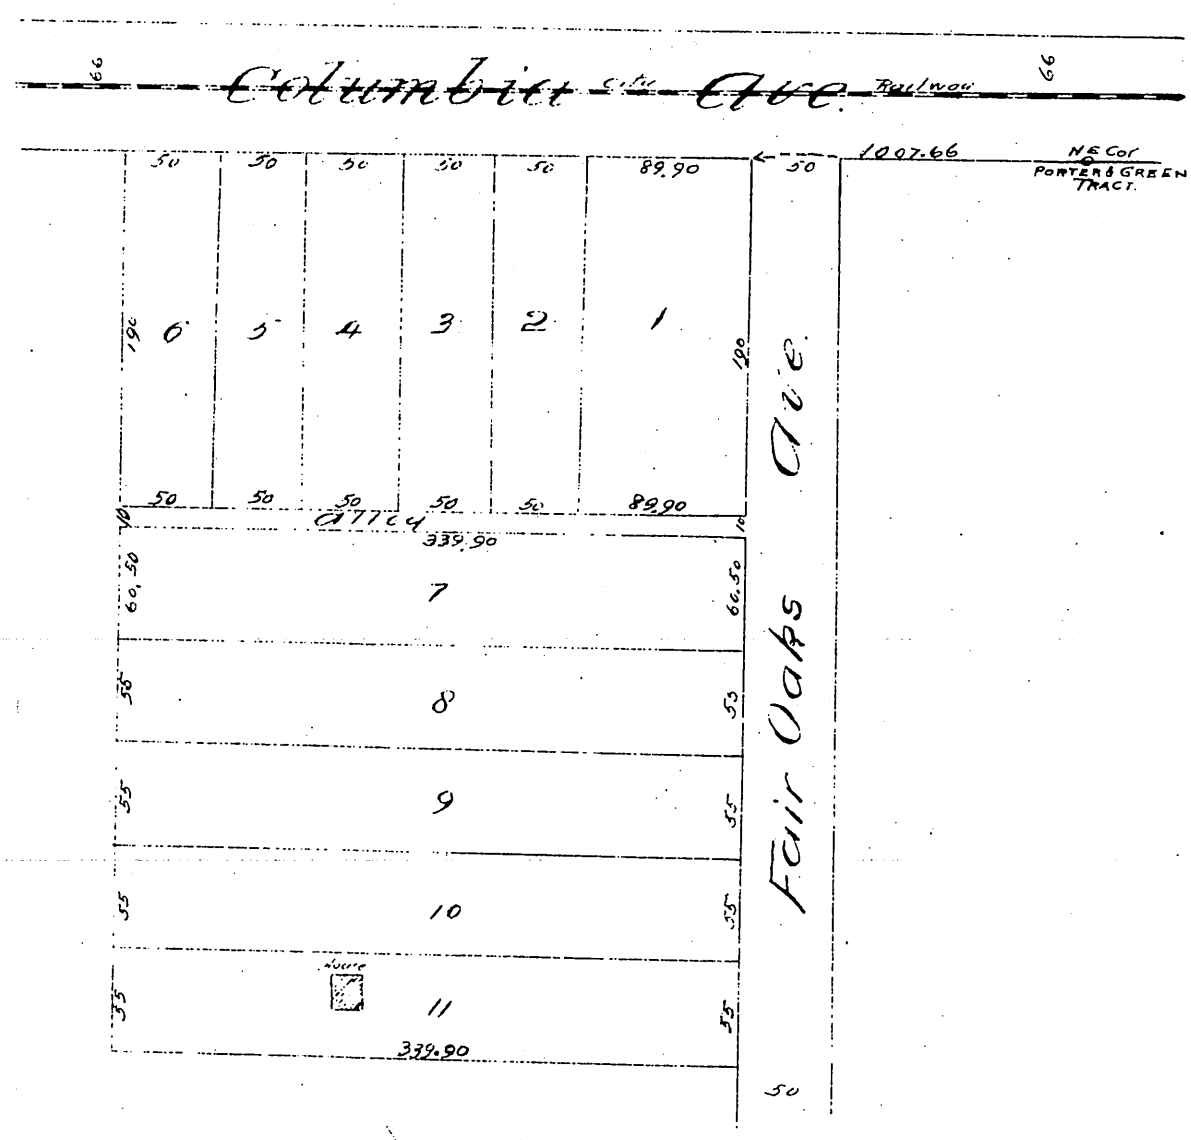 66 66
Columbia City Ave. Railway
50 50 50 50 50 89.90 50 1007.66 N E Cor
PORTER & GREEN
TRACT.
190 6 5 4 3 2 1 190
50 50 50 50 50 89.90
10 Alley 10
339.90
60.50 7 60.50
55 8 55
55 9 55
55 10 55
House
55 11 55
339.90
Fair Oaks Ave.
50